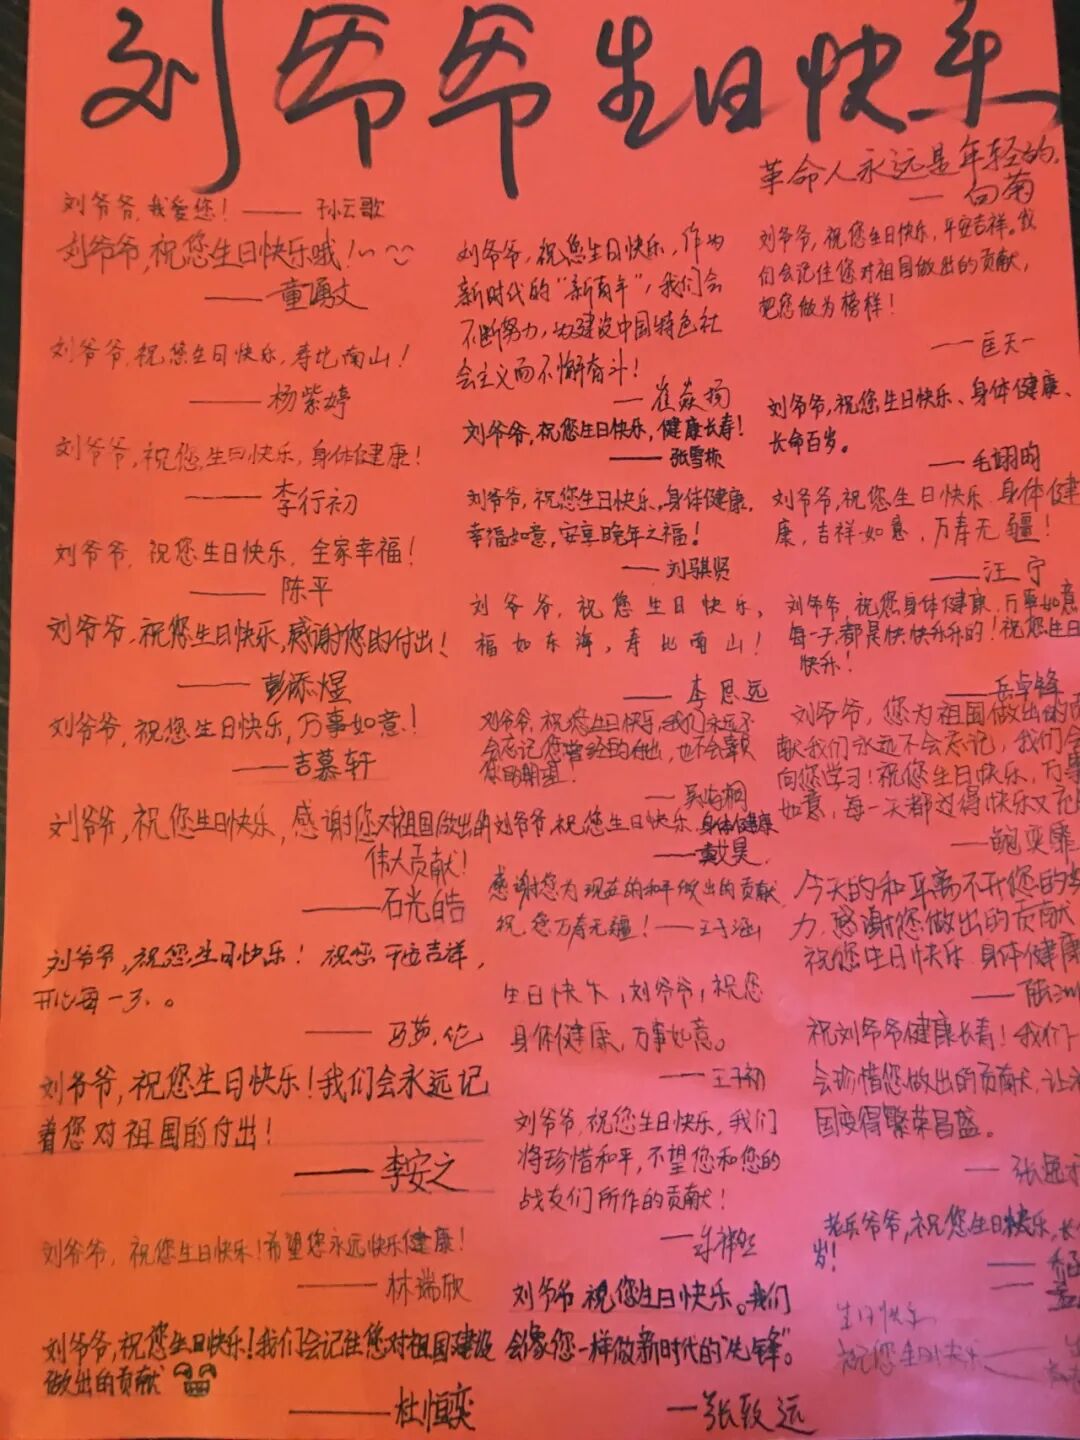 刘爷爷生日快乐
革命人永远是年轻的.
— 向菊
刘爷爷,我爱您! —— 孙云歌
刘爷爷,祝您生日快乐哦!~
—— 童勇文
刘爷爷,祝您生日快乐,寿比南山!
—— 杨紫婷
刘爷爷,祝您生日快乐,身体健康!
—— 李行初
刘爷爷,祝您生日快乐,全家幸福!
—— 陈平
刘爷爷,祝您生日快乐,感谢您的付出!
—— 彭添煜
刘爷爷,祝您生日快乐,万事如意!
—— 吉慕轩
刘爷爷,祝您生日快乐,感谢您对祖国做出的
伟大贡献!
—— 石光皓
刘爷爷,祝您生日快乐!祝您平安吉祥,
开心每一天。
——
刘爷爷,祝您生日快乐!我们会永远记
着您对祖国的付出!
—— 李安之
刘爷爷,祝您生日快乐!希望您永远快乐健康!
—— 林端欣
刘爷爷,祝您生日快乐!我们会记住您对祖国建设
做出的贡献
—— 杜恒奕
刘爷爷,祝您生日快乐,作为
新时代的“新青年”,我们会
不断努力,为建设中国特色社
会主义而不懈奋斗!
— 崔焱扬
刘爷爷,祝您生日快乐,健康长寿!
—— 张雪
刘爷爷,祝您生日快乐,身体健康,
幸福如意,安享晚年之福!
— 刘骐贤
刘爷爷,祝您生日快乐,
福如东海,寿比南山!
—— 李思远
刘爷爷,祝您生日快乐,我们永远不
会忘记您曾经的付出,也不会辜负
您的期望!
— 吴
刘爷爷,祝您生日快乐,身体健康
——
感谢您为现在的和平做出的贡献
祝您万寿无疆!—— 王子涵
生日快乐,刘爷爷,祝您
身体健康,万事如意。
—— 王子初
刘爷爷,祝您生日快乐,我们
将珍惜和平,不望您和您的
战友们所作的贡献!
—
刘爷爷,祝您生日快乐。我们
会像您一样做新时代的“先锋”。
— 张致远
刘爷爷,祝您生日快乐,平安吉祥。我
们会记住您对祖国做出的贡献,
把您做为榜样!
— 匡天一
刘爷爷,祝您生日快乐、身体健康、
长命百岁。
— 毛翊昀
刘爷爷,祝您生日快乐 身体健
康,吉祥如意,万寿无疆!
— 汪宁
刘爷爷,祝您身体健康,万事如意
每一天都是快快乐乐的!祝您生日
快乐!
— 岳卓锋
刘爷爷,您为祖国做出的贡
献我们永远不会忘记,我们会
向您学习!祝您生日快乐,万事
如意,每一天都过得快乐又充
— 鲍奕
今天的和平离不开您的努
力,感谢您做出的贡献
祝您生日快乐 身体健康
— 陆
祝刘爷爷健康长寿!我们
会珍惜您做出的贡献,让
国变得繁荣昌盛。
— 张
老兵爷爷,祝您生日快乐,长
岁!
—
—
生日快乐
祝您生日快乐